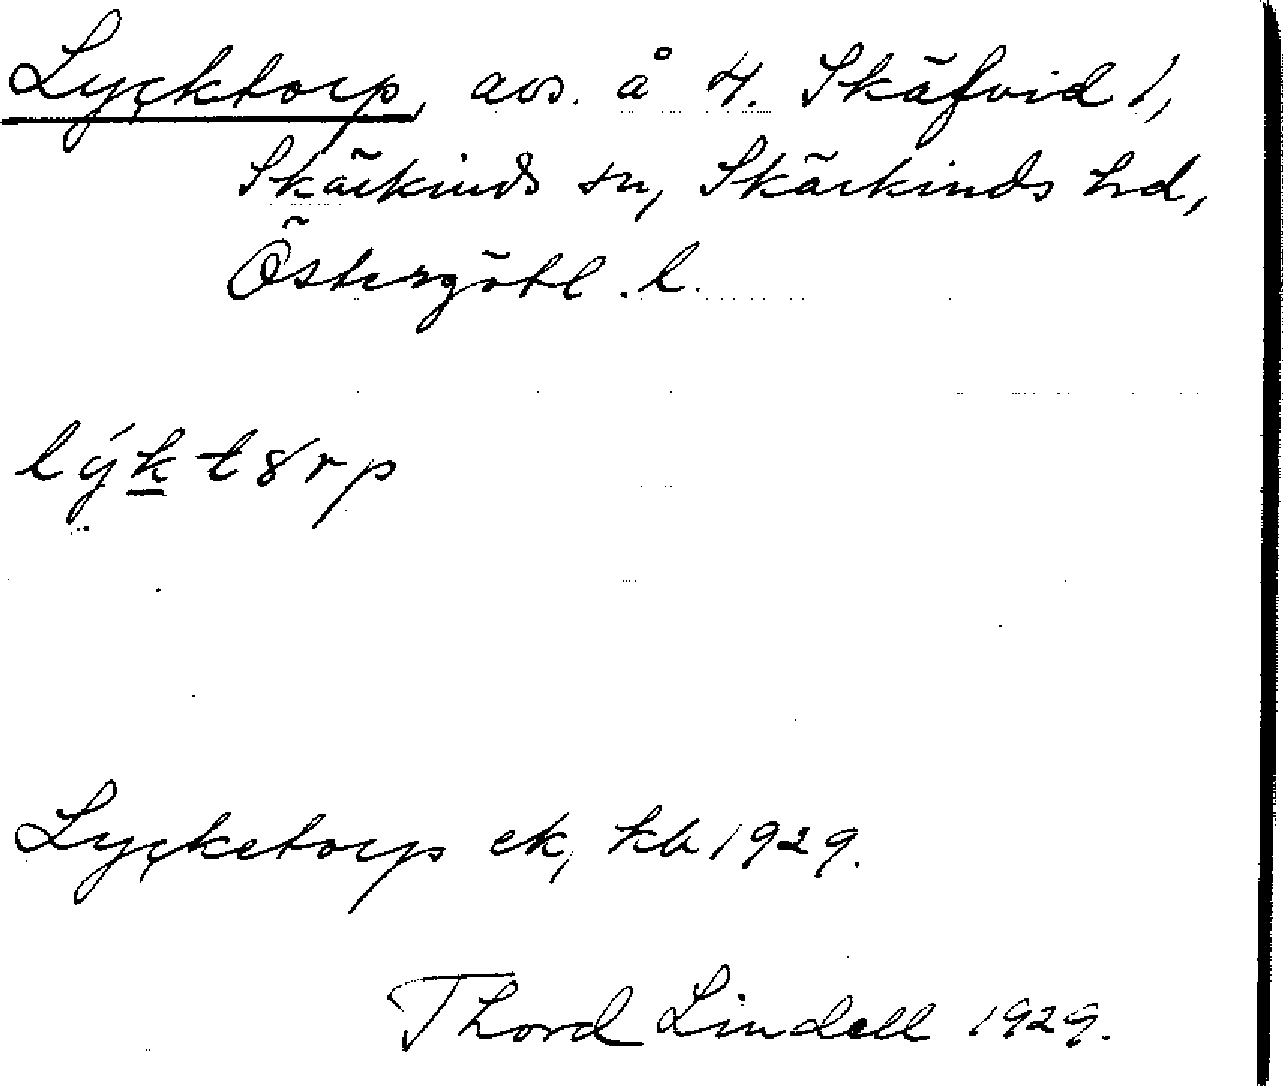 Lycktorp, avs. å 4. Skäfvid 1,
Skärkinds sn, Skärkinds hd,
Östergötl. l.
lýktȣrp
Lycketorp ek, kb 1929.
Thord Lindell 1929.